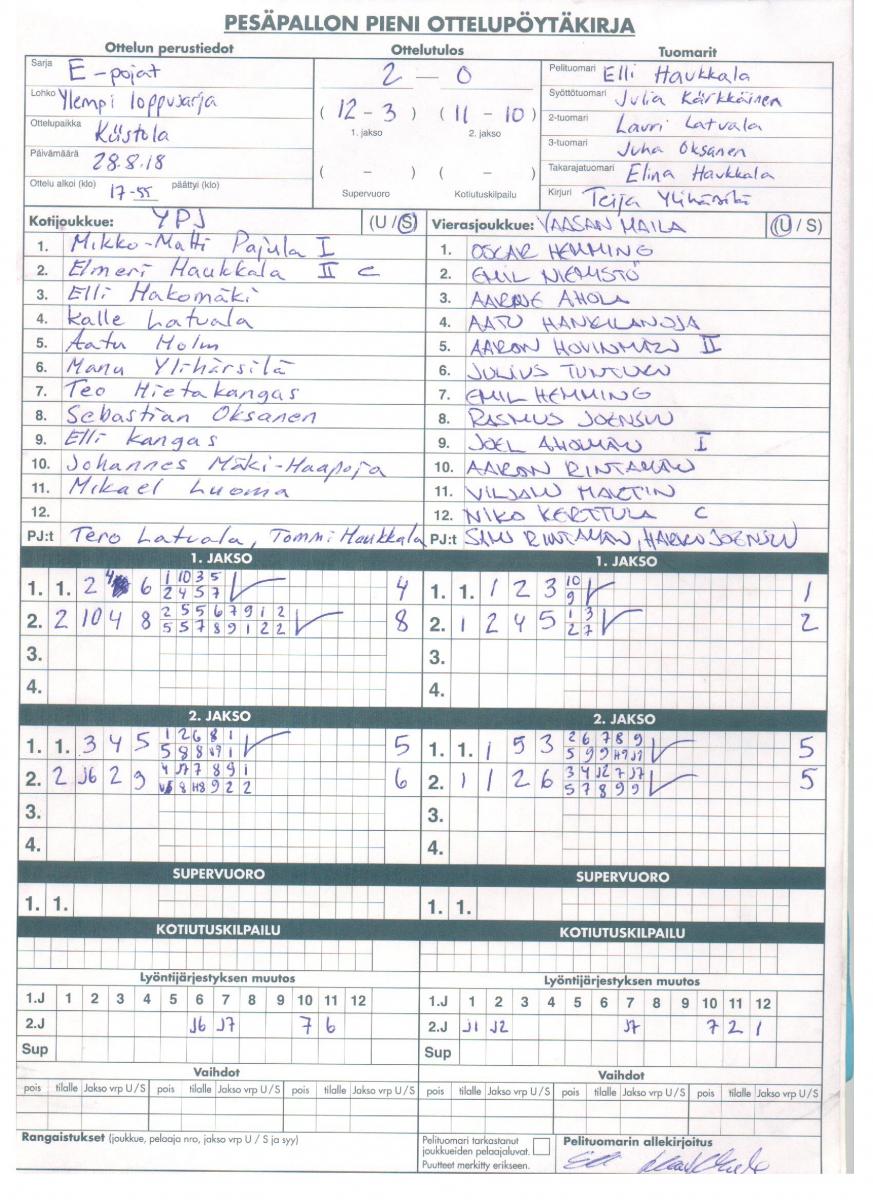 PESÄPALLON PIENI OTTELUPÖYTÄKIRJA
Ottelun perustiedot Ottelutulos Tuomarit
Sarja E-pojat
Lohko Ylempi loppusarja
Ottelupaikka Kiistola
Päivämäärä 28.8.18
Ottelu alkoi (klo) 17-55 päättyi (klo)
2 — 0
(12 - 3) (11 - 10)
1. jakso 2. jakso
( - ) ( - )
Supervuoro Kotiutuskilpailu
Pelituomari Elli Haukkala
Syöttötuomari Julia Kärkkäinen
2-tuomari Lauri Latvala
3-tuomari Juha Oksanen
Takarajatuomari Elina Haukkala
Kirjuri Teija Ylihärsilä
Kotijoukkue: YPJ (U / S)
1. Mikko-Matti Pajula I
2. Elmeri Haukkala II C
3. Elli Hakomäki
4. Kalle Latvala
5. Aatu Holm
6. Manu Ylihärsilä
7. Teo Hietakangas
8. Sebastian Oksanen
9. Elli Kangas
10. Johannes Mäki-Haapoja
11. Mikael Luoma
12.
PJ:t Tero Latvala, Tommi Haukkala
Vierasjoukkue: VAASAN MAILA (U / S)
1. OSCAR HEMMING
2. EMIL NIEMISTÖ
3. AARNE AHOLA
4. AATU HANKILANOJA
5. AARON HOVINMÄKI II
6. JULIUS TUNTURI
7. EMIL HEMMING
8. RASMUS JOENSUU
9. JOEL AHOMÄKI I
10. AARON RINTAMÄKI
11. VILJAMI MARTIN
12. NIKO KERTTULA C
PJ:t SAMI RINTAMÄKI, HARRI JOENSUU
1. JAKSO
1. 1. 2 6 1 10 3 5 4
2 4 5 7
2. 2 10 4 8 2 5 5 6 7 9 1 2 8
5 5 7 8 9 1 2 2
3.
4.
1. JAKSO
1. 1. 1 2 3 10 1
9
2. 1 2 4 5 1 3 2
2 7
3.
4.
2. JAKSO
1. 1. 3 4 5 1 2 6 8 1 5
5 8 8 9 1
2. 2 J6 2 9 4 J7 7 8 9 1 6
8 H8 9 2 2
3.
4.
2. JAKSO
1. 1. 1 5 3 2 6 7 8 9 5
5 9 9 H9 J1
2. 1 1 2 6 3 4 J2 7 J7 5
5 7 8 9 9
3.
4.
SUPERVUORO
1. 1.
SUPERVUORO
1. 1.
KOTIUTUSKILPAILU
KOTIUTUSKILPAILU
Lyöntijärjestyksen muutos
1.J 1 2 3 4 5 6 7 8 9 10 11 12
2.J J6 J7 7 6
Sup
Lyöntijärjestyksen muutos
1.J 1 2 3 4 5 6 7 8 9 10 11 12
2.J J1 J2 J7 7 2 1
Sup
Vaihdot
pois tilalle Jakso vrp U / S pois tilalle Jakso vrp U / S pois tilalle Jakso vrp U / S
Vaihdot
pois tilalle Jakso vrp U / S pois tilalle Jakso vrp U / S pois tilalle Jakso vrp U / S
Rangaistukset (joukkue, pelaaja nro, jakso vrp U / S ja syy)
Pelituomari tarkastanut
joukkueiden pelaajaluvat.
Puutteet merkitty erikseen.
Pelituomarin allekirjoitus